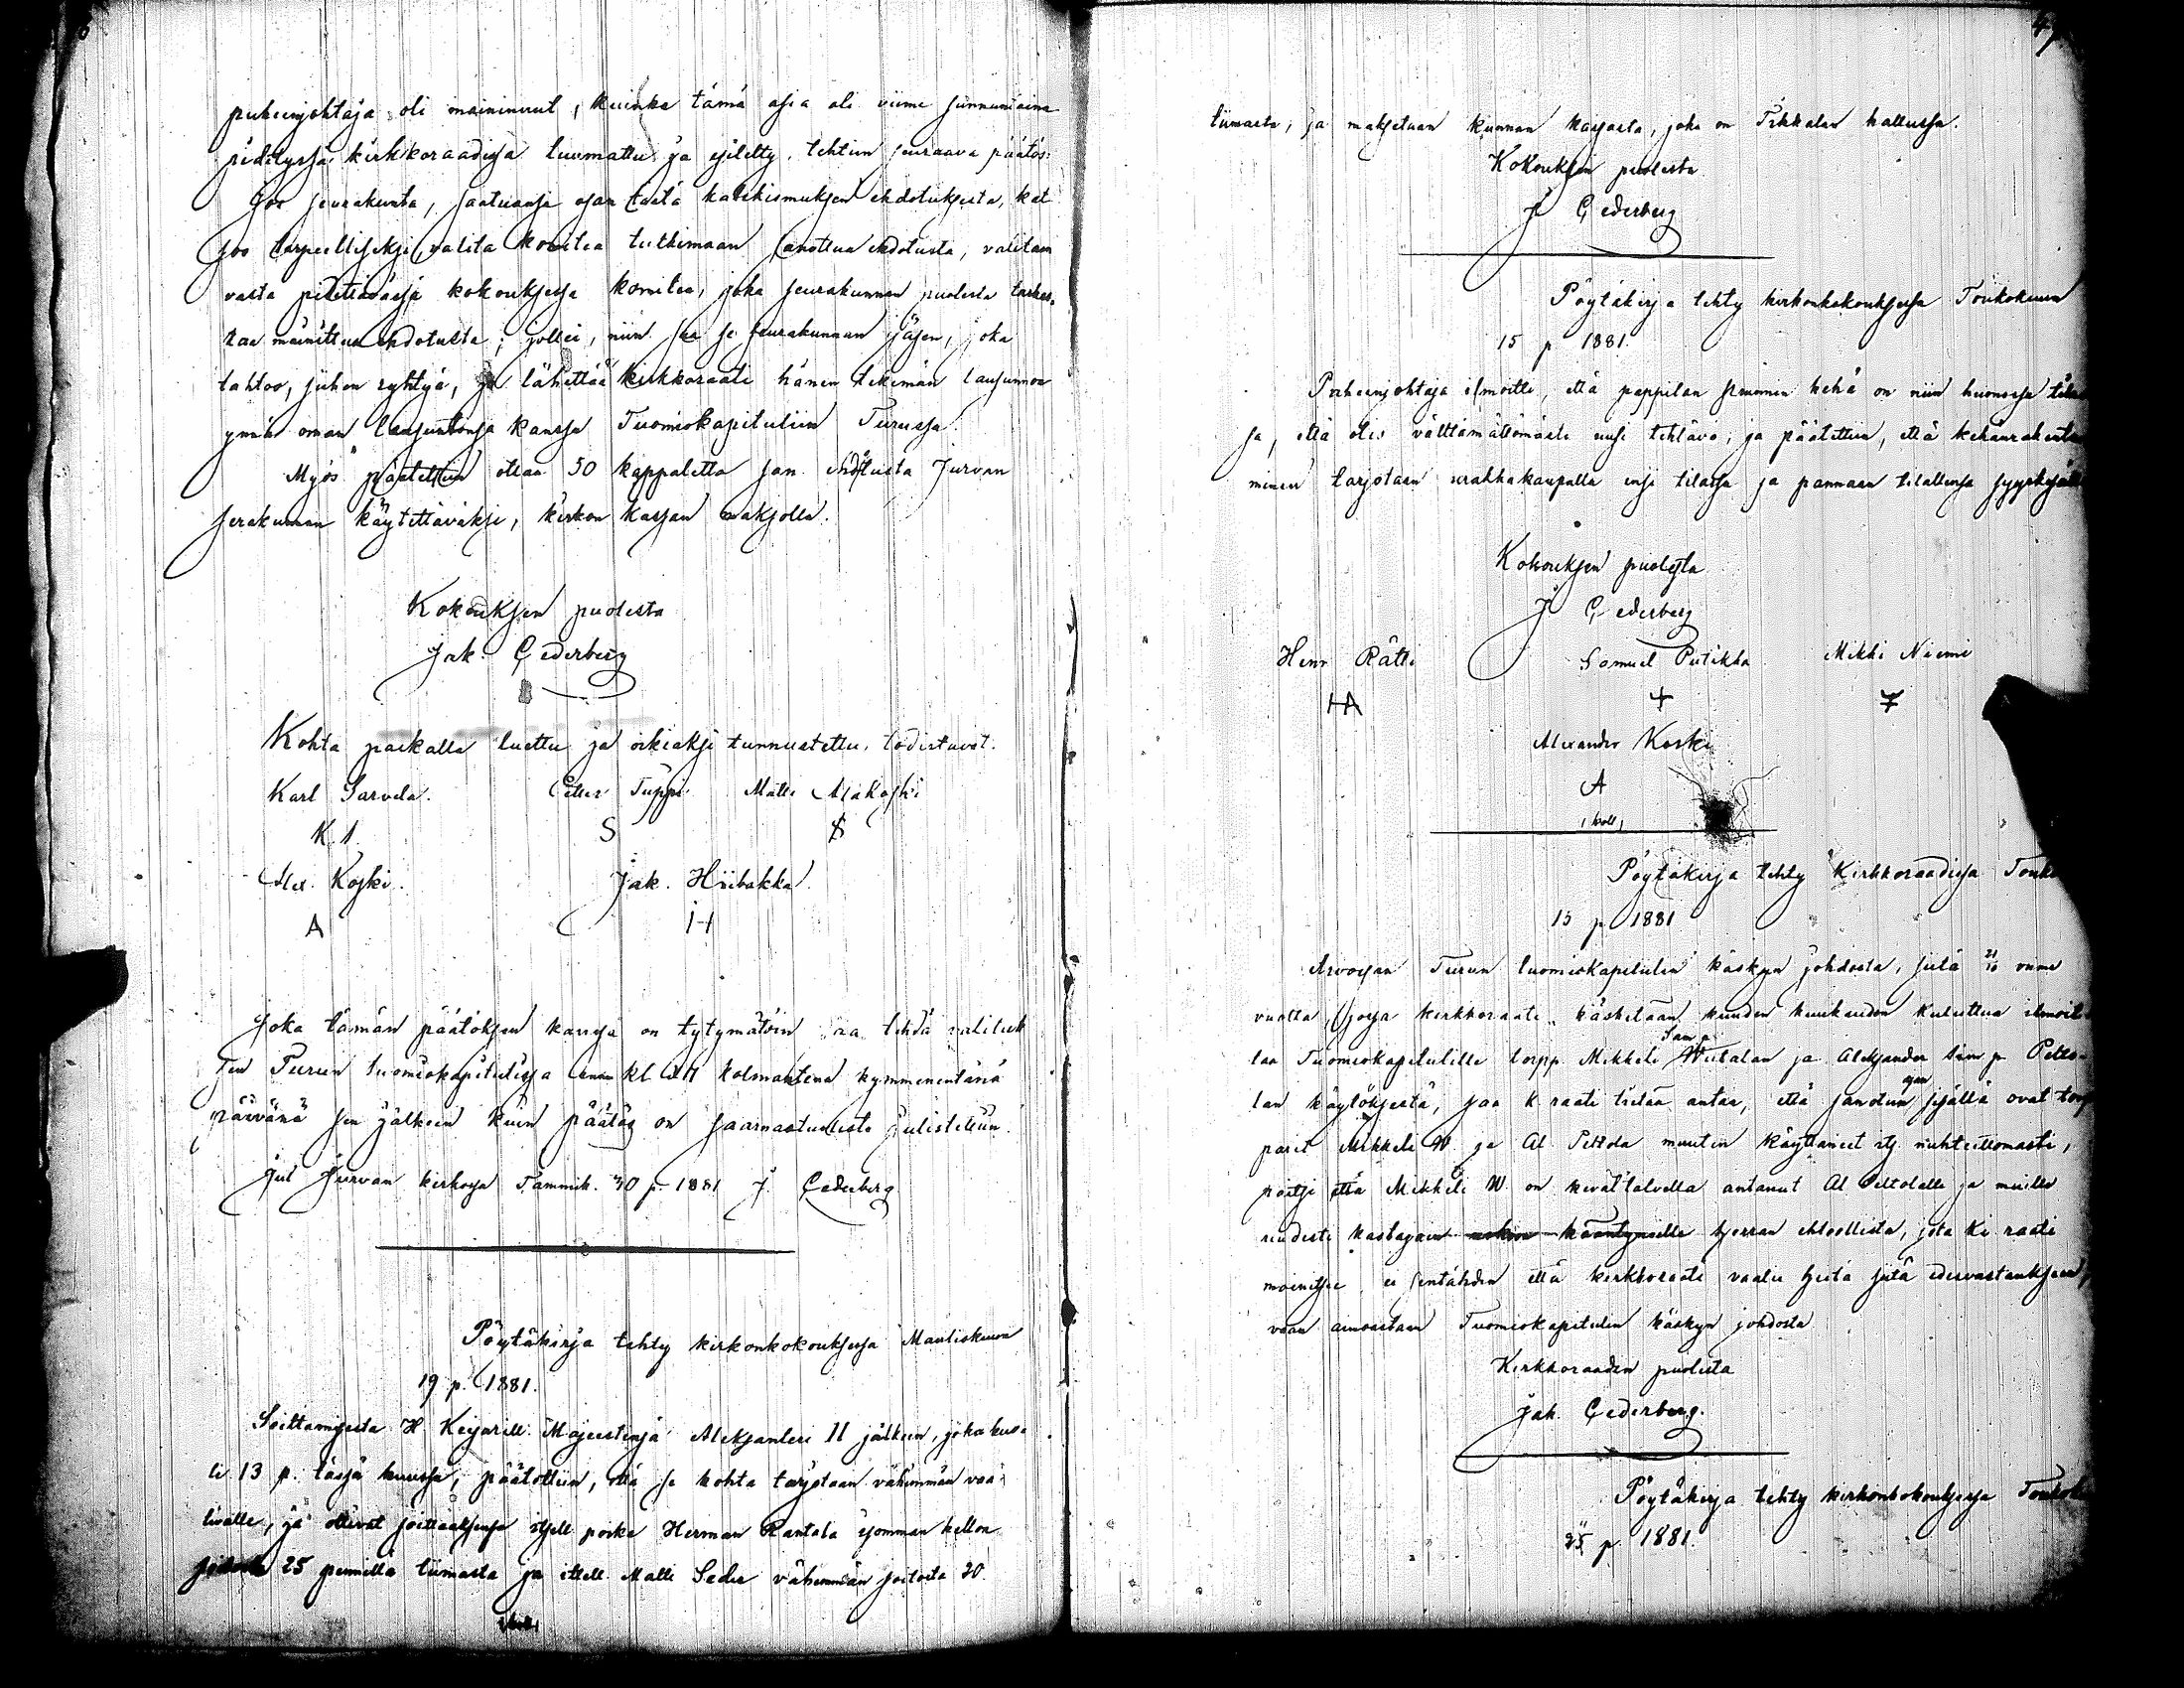 puheenjohtaja oli maininnut, kuinka tämä asia oli viime sunnuntaina
pidetyssä kirkkoraadissa luvattu ja esiletty, tehtiin seuraava päätös:
Jos seurakunta, saatuansa osan tästä katekismuksen ehdotuksesta, kat
soo tarpeelliseksi valita komitea tutkimaan sanottua ehdotusta, valitaan
vasta pidettävässä kokouksessa komitea, joka seurakunnan puolesta tarkas-
taa mainittua ehdotusta; jollei, niin saa se seurakunnan jäsen, joka
tahtoo, siihen ryhtyä, ja lähettää kirkkoraati hänen tekemän lausunnon
ynnä oman lausuntonsa kanssa Tuomiokapituliin Turussa.
Myös päätettiin ottaa 50 kappaletta san. ehdotusta Jurvan
serakunnan käytettäväksi, kirkon kassan maksolla.
Kokouksen puolesta
Jak. Cederberg
Kohta paikalla luettu ja oikiaksi tunnustettu, todistavat.
Karl Sarvela. Petter Tuppi Matti Alakoski
K. S. S $
Alex. Koski. Jak. Hiibakka.
A H
Joka tämän päätöksen kanssa on tytymätöin saa tehdä valituk
sen Turun tuomiokapitulissa ennen kl 12 kolmantena kymmenentänä
päivänä sen jälkeen kuin päätös on saarnastuolista julistettu.
Jul Jurvan kirkossa Tammik. 30 p. 1881 J. Cederberg
Pöytäkirja tehty kirkonkokouksessa Maaliskuun
19 p. 1881.
Soittamisesta H. Keisarill. Majesteetinsä Aleksanteri II jälkeen, joka kuo-
li 13 p. tässä kuussa, päätettiin, että se kohta tarjotaan vähimmän vaa-
tivalle, ja ottivat soittaaksensa itsell. poika Herman Rantala isomman kellon
25 pennillä tiimasta ja itsell. Matti Seder vähemmän soitosta 20
tiimasta, ja maksetaan kunnan kassasta, joka on Tikkalan hallussa.
Kokouksen puolesta
J. Cederberg
Pöytäkirja tehty kirkonkokouksessa Toukokuun
15 p 1881.
Puheenjohtaja ilmoitti, että pappilan kehä on niin huonossa tila
sa, että olis välttämättömästi uusi tehtävä; ja päätettiin, että kehänrakenta
minen tarjotaan urakkakaupalla ensi tilassa ja pannaan tilallensa
Kokouksen puolesta
J. Cederberg
Henr Rätti Samuel Putikka Mikki Niemi
HA
Alexander Koski
A
Pöytäkirja tehty Kirkkoraadissa Touko
15 p 1881
Arvoisan Turun tuomiokapitulin käskyn johdosta, siitä 21/10 viime
vuotta, jossa kirkkoraati käsketään kuuden kuukauden kuluttua ilmoit
taa Tuomiokapitulille torpp. Mikkeli Sam p. Wiitalan ja Aleksander Sim p Petto-
lan käytöksestä, saa k. raati tietää antaa, että sanotun ajan sisällä ovat torp
parit Mikkeli W. ja Al. Peltola muuten käyttäneet itz. nuhteettomasti,
paitsi että Mikkeli W. on kevättalvella antanut Al Peltolalle ja muille
uudesti kastajain uskoon kääntyneille Herran ehtoollista, jota ki raati
mainitsee, ei sentähden että kirkkoraati vaatii heitä siitä edesvastaukseen,
vaan ainoastaan Tuomiokapitulin käskyn johdosta
Kirkkoraadin puolesta
Jak. Cederberg.
Pöytäkirja tehty kirkonkokouksessa Touko
25 p 1881.